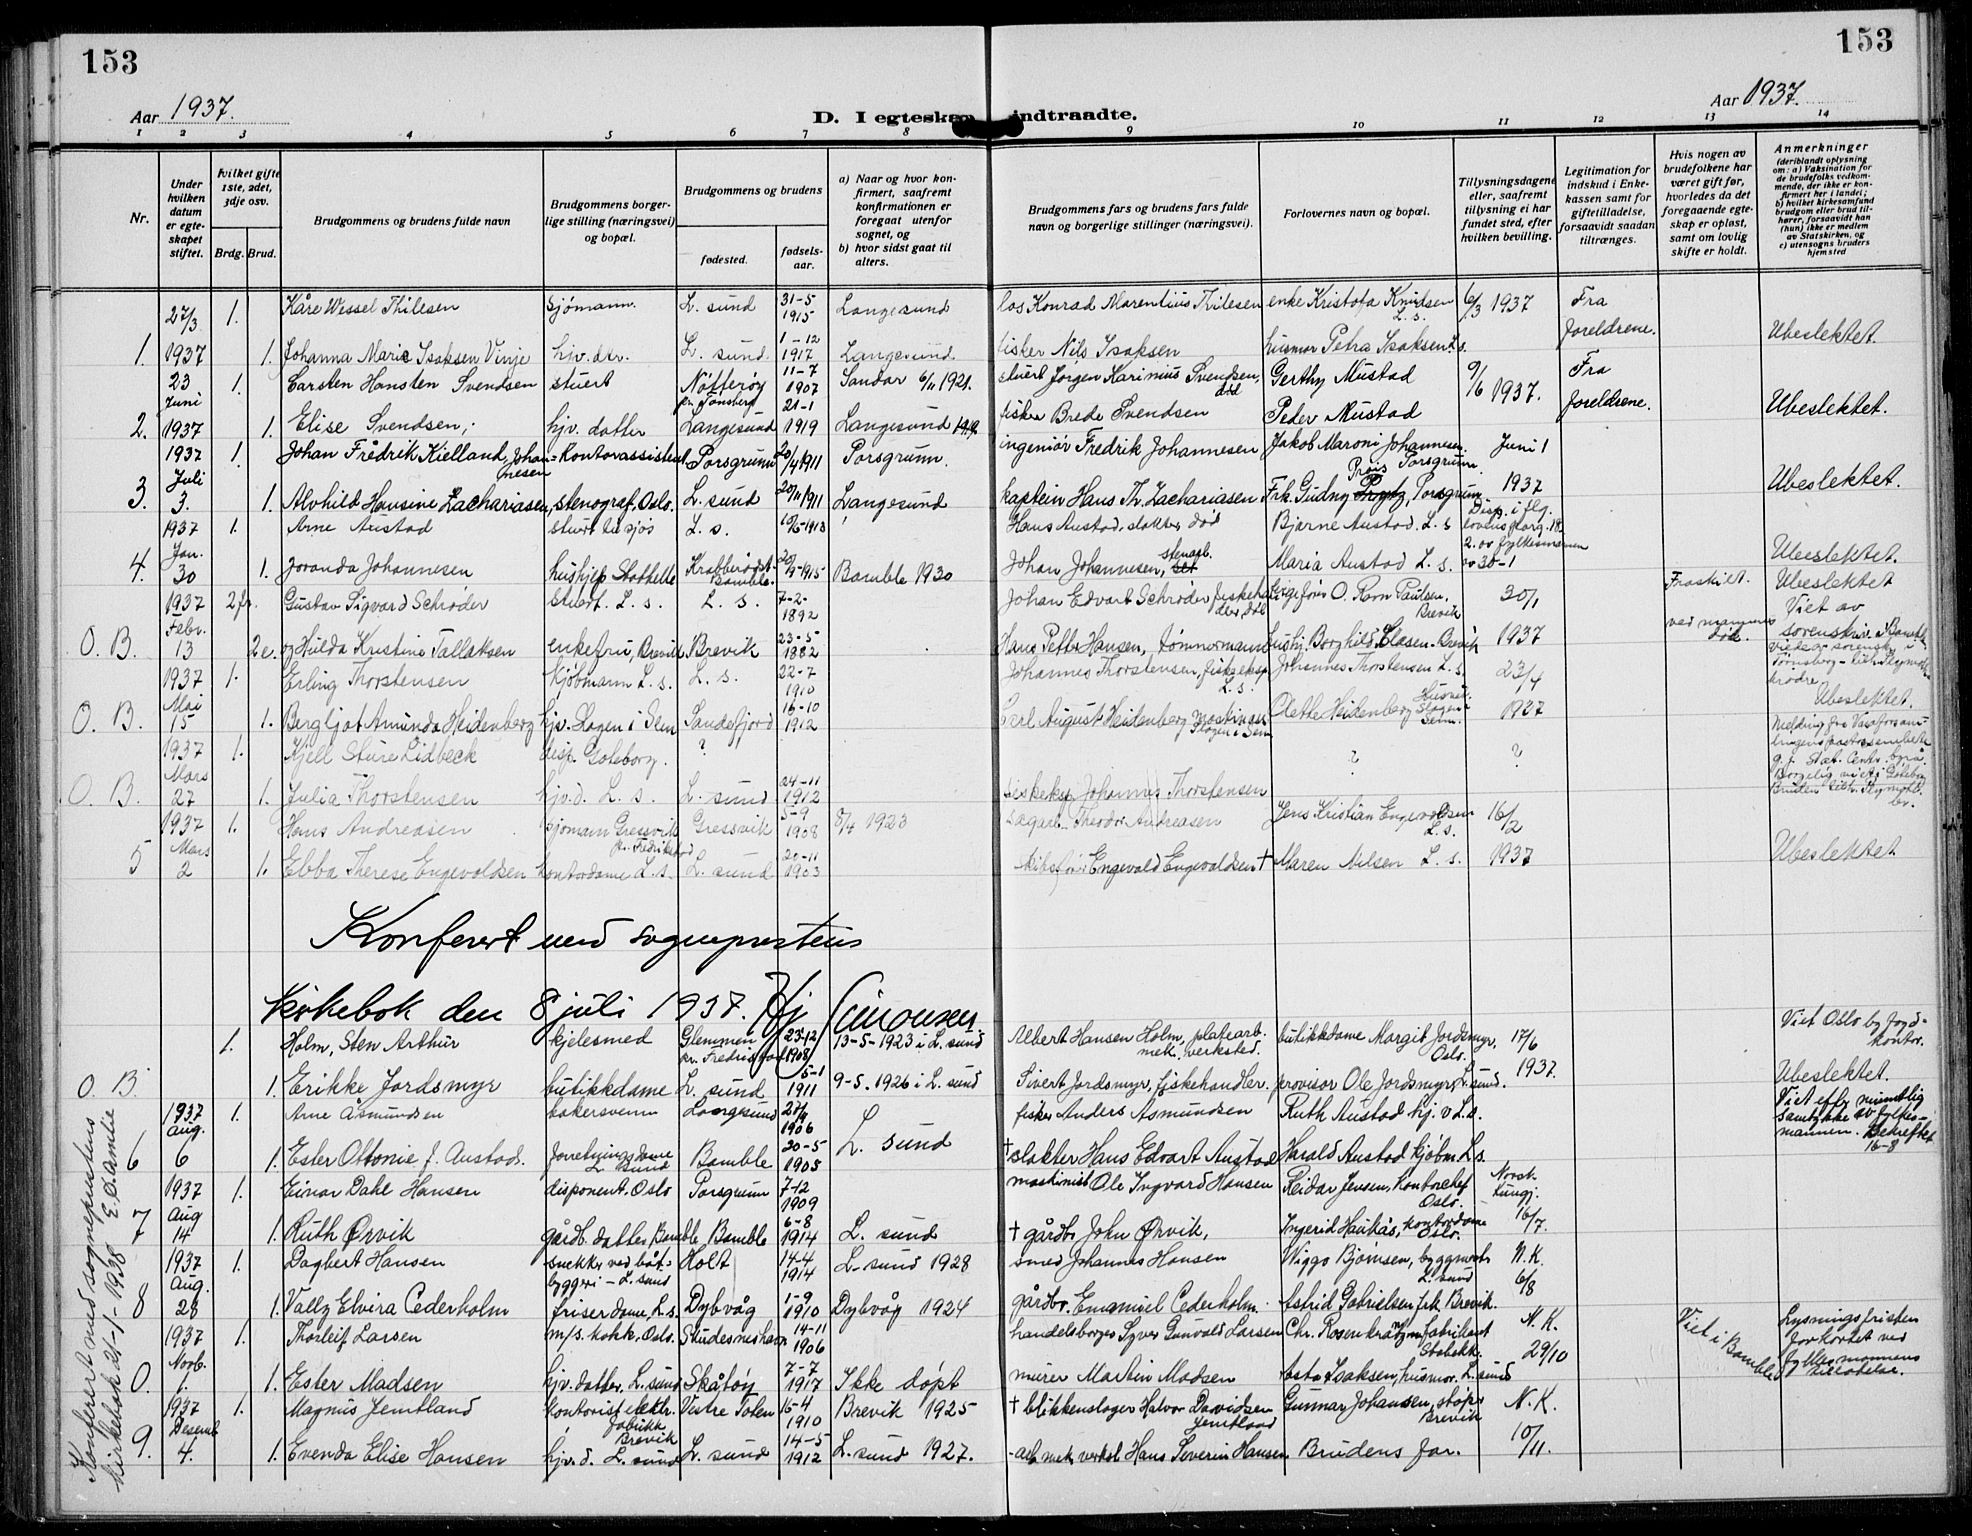 153
153
Aar 1937.
D. I egteskap indtraadte.
Aar 1937.
1 2 3 4 5 6 7 8 9 10 11 12 13 14
Nr.
Under hvilken datum er egteskapet stiftet.
hvilket gifte 1ste, 2det, 3dje osv.
Brdg. Brud.
Brudgommens og brudens fulde navn
Brudgommens borgerlige stilling (næringsvei) og bopæl.
Brudgommens og brudens
fødested.
fødselsaar.
a) Naar og hvor konfirmert, saafremt konfirmationen er foregaat utenfor sognet, og
b) hvor sidst gaat til alters.
Brudgommens fars og brudens fars fulde navn og borgerlige stillinger (næringsvei).
Forlovernes navn og bopæl.
Tillysningsdagene eller, saafremt tillysning ei har fundet sted, efter hvilken bevilling.
Legitimation for indskud i Enkekassen samt for giftetilladelse, forsaavidt saadan tiltrænges.
Hvis nogen av brudefolkene har været gift før, hvorledes da det foregaaende egteskap er opløst, samt om lovlig skifte er holdt.
Anmerkninger
(deriblandt oplysning om: a) Vaksination for de brudefolks vedkommende, der ikke er konfirmert her i landet; b) hvilket kirkesamfund brudgom eller brud tilhører, forsaavidt han (hun) ikke er medlem av Statskirken, og c) utensogns bruders hjemsted
27/3 1. Kåre Wessel Thilesen sjømann. L. sund 31-5 1915 Langesund los Konrad Marentius Thilesen enke Kristofa Knudsen L.s. 6/3 1937 Fra
1. 1937 1. Johanna Marie Isaksen Vinje hjv. dtr. L. sund. 1-12 1917 Langesund. fisker Nils Isaksen husmor Petra Isaksen L.s. foreldrene. Ubeslektet.
23 Juni 1. Carsten Hansten Svendsen stuert Nøtterøy pr. Tønsberg 11-7 1907 Sandar 6/11 1921. stuert Jørgen Karinius Svendsen, død Gerthy Mustad 9/6 1937. Fra
2. 1937 1. Elise Svendsen, hjv. datter Langesund 21-1 1919 Langesund fisker Brede Svendsen Peder Mustad foreldrene. Ubeslektet.
1937 1. Johan Frédrik Kielland Johannesen Kontorassistent Porsgrunn 20/4 1911 Porsgrunn. ingeniør Fredrik Johannesen Jakob Maroni Johannesen Porsgrunn. Juni 1
3. Juli 3. 1. Alvhild Hansine Zachariasen, stenograf, Oslo. L. sund 20/11 1911 Langesund kaptein Hans Th. Zachariasen Frk. Gudny Prois Porsgrunn 1937 Ubeslektet.
1937 1. Arne Austad stuert til sjøs L. s. Hans Austad. slakter død Bjarne Austad. L. s Disp. i flg. lovens parag. 18. 2. av fylkesmannen
4. Jan. 30 1. Joranda Johannesen hushjelp Stathelle Krabberødst. Bamble. 1915 Bamble 1930 Johan Johannesen, stenarb. Maria Austad L. s. av 30-1 Ubeslektet.
1937 2 fr. Gustav Sigvard Schrøder stuert. L. s. L. s. 7-2- 1892 Johan Edvart Schrøder, fiskehandler, død O. Rom Paulsen. Brevik 30/1 Fraskilt. Ubeslektet
O. B. Febr. 13 2 e. og Hulda Kristine Tallaksen enkefru, Brevik Brevik 23-5 1882 Hans Petter Hansen, tømmermann hushj. Borghild Olasen. Brevik 1937 ved mannens død. Viet av sorenskriv.
1937 1. Erling Thorstensen kjøbmann L. s. L. s. 22-7 1910 Johannes Thorstensen, fiskeeksp. L. s. Johannes Thorstensen L. s. 23/4
O. B. Mai 15 1. Bergljot Amunda Heidenberg hjv. Slagen i Sem Sandefjord 16-10 1912 Carl August Heidenberg maskinar. Slagen i Sem Olette Heidenberg Husmor. Slagen i Sem. 1937 Ubeslektet.
1937 1. Kjell Sture Lidbeck disp. Göteborg. ? ? ?
O. B. Mars 27 1. Julia Thorstensen hjv. d. L. s. L. sund 24-11 1912 fiskeeksp Johannes Thorstensen
1937 1. Hans Andreasen sjømann Gressvik pr. Fredrikstad Gressvik 5-9 1908 8/4 1923 Sagarb. Theodor Andreasen Jens Kristian Engevoldsen L. s. 16/2
5 Mars 2 1. Ebba Therese Engevoldsen kontordame L. s. L. sund 20-11 1903 Engevald Engevoldsen † Maren Nilsen L. s. 1937 Ubeslektet
Konferert med sogneprestens
Kirkebok den 8 juli 1937. Hj Simonsen.
1. Holm, Sten Arthur kjelesmed Glemmen pr. Fredrikstad 23-12 1908 13-5-1923 i L. sund Albert Hansen Holm, platearb. mek. verksted. butikkdame Margit Jordsmyr, Oslo. 17/6 Viet Oslo byfogdkontor.
O. B. 1. Erikke Jordsmyr butikkdame L. sund 5-1 1911 9-5.1926 i L. sund Sivert Jordsmyr, fiskehandler. provisor Ole Jordsmyr, L. sund. 1937. Ubeslektet.
1937 1. Arne Åsmundsen bakersvenn Langesund 1906 L. sund fisker Anders Asmundsen Ruth Austad hj. v L.s. Viet efter muntlig samtykke av fylkesmannen. Bekreftet 16-8
6 Aug. 6 1. Ester Ottonie f. Austad. forretningsdame L. sund Bamble 20-5 1905 † slakter Hans Edvart Austad Harald Austad kjøbm. L.s.
1937 1. Einar Dahl Hansen disponent. Oslo Porsgrunn 7-12 1909 maskinist Ole Ingvard Hansen Reidar Jensen, Kontorchef Oslo. Norsk Kungj.
7 Aug 14 1. Ruth Ørvik gårdb. datter Bamble Bamble 6-8 1914 L. sund † gårdbr. John Ørvik, Ingerid Haukås, kontordame Oslo. 16/7.
1937 1. Dagbert Hansen snekker ved båtbyggeri - L. sund Holt 14-4 1914 L. sund 1928 smed Johannes Hansen Wiggo Bjørnsen, byggmest. L. sund N. K.
8 Aug. 28 1. Vally Elvira Cederholm friserdame, L.s. Dybvåg 1-9 1910 Dybvåg 1924 gårdbr. Emanuel Cederholm. Astrid Gabrielsen frk Brevik. 6/8
1937 1. Thorleif Larsen m/s. kokk, Oslo. Skudesneshavn 14-11 1906 handelsborger Syver Gunvald Larsen Chr. Rosenkrans fabrikant Stabekk. N. K. Viet i Bamble Lysningsfristen forkortet ved fylkesmannens tillatelse.
0. Novb. 1. 1. Ester Madsen hjv. datter. L. sund Skåtøy 7-7 1917 Ikke døpt murer Martin Madsen Asta Isaksen, husmor. L. sund 29/10
1937 1. Magnus Jemtland kontorist elektr. fabrikk Brevik Vestre Toten 15-4 1910 Brevik 1925 † blikkenslager Halvor Davidsen Jemtland Gunnar Johansen, støper Brevik N. K.
9. Desemb 4. 1. Evenda Elise Hansen hjv. d. L. sund L. sund 14-5 1912 L. sund 1927. arb mek. verkst Hans Severin Hansen Brudens far. 10/11.
Konferert med sogneprestens
kirkebok 21-1-1938 E. O. Amlie